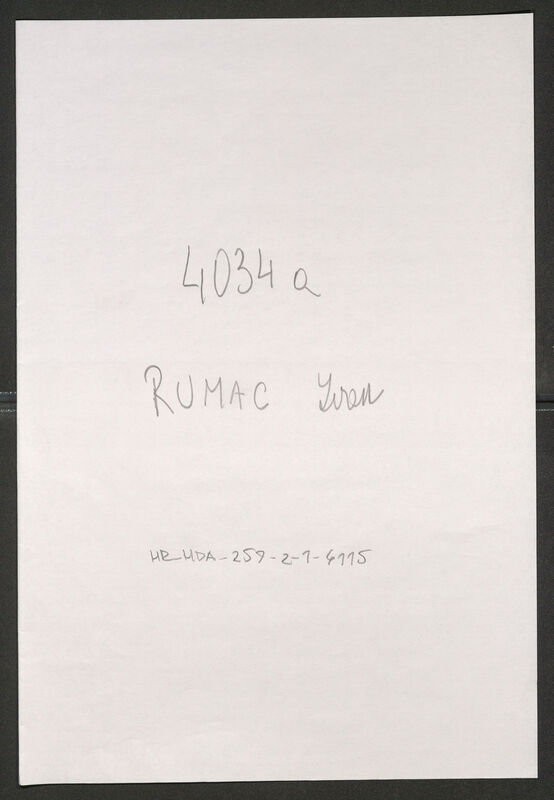 4034 a
RUMAC Ivan
HR-HDA-259-2-1-4115